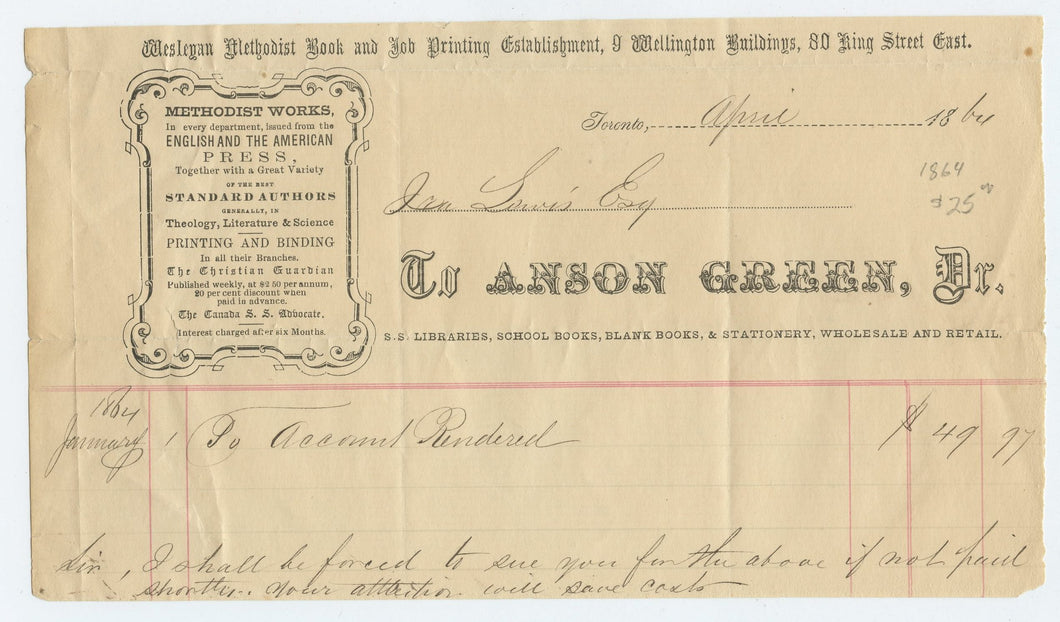 Wesleyan Methodist Book and Job Printing Establishment, 9 Wellington Buildings, 80 King Street East.
METHODIST WORKS,
In every department, issued from the
ENGLISH AND THE AMERICAN
PRESS,
Together with a Great Variety
OF THE BEST
STANDARD AUTHORS
GENERALLY, IN
Theology, Literature & Science
PRINTING AND BINDING
In all their Branches.
The Christian Guardian
Published weekly, at $2 50 per annum,
20 per cent discount when
paid in advance.
The Canada S. S. Advocate.
Interest charged after six Months.
Toronto, April 1864
1864
$25
Lewis Esq
To ANSON GREEN, Dr.
S.S. LIBRARIES, SCHOOL BOOKS, BLANK BOOKS, & STATIONERY, WHOLESALE AND RETAIL.
1864
January 1 To Account Rendered $ 49 97
Sir, I shall be forced to sue you for the above if not paid
shortly. Your attention will save costs